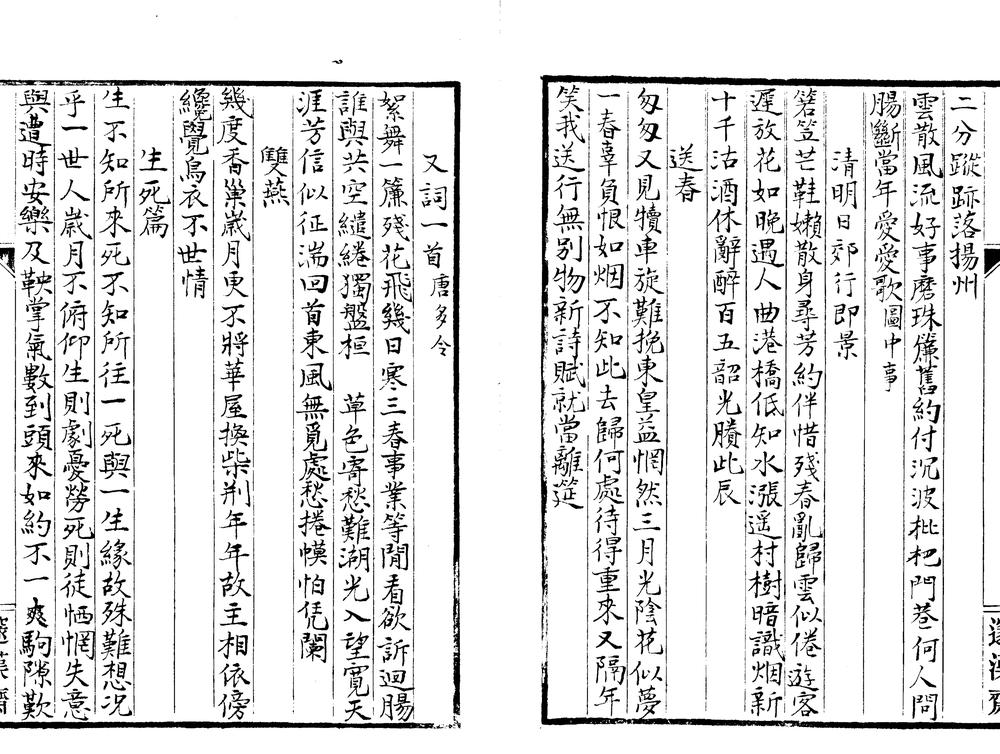 二分蹤跡落揚州
雲散風流好事磨珠簾舊約付沉波枇杷門巷何人問
腸斷當年愛愛歌圖中事
清明日郊行即景
箬笠芒鞋嬾散身尋芳約伴惜殘春亂歸雲似倦遊客
遲放花如晚遇人曲港橋低知水漲遥村樹暗識烟新
十千沽酒休辭醉百五韶光賸此辰
送春
匆匆又見犢車旋難挽東皇益惘然三月光陰花似夢
一春辜負恨如烟不知此去歸何處待得重來又隔年
笑我送行無别物新詩賦就當離筵
又詞一首唐多令
絮舞一簾殘花飛幾日寒三春事業等閒看欲訴迴腸
誰與共空繾綣獨盤桓　草色寄愁難湖光入望寬天
涯芳信似征湍回首東風無覓處愁捲幙怕凭闌
雙燕
幾度香巢歲月更不將華屋換柴荆年年故主相依傍
纔覺烏衣不世情
生死篇
生不知所來死不知所往一死與一生緣故殊難想況
乎一世人歲月不俯仰生則劇憂勞死則徒恓惘失意
與遭時安樂及鞅掌氣數到頭來如約不一爽駒隙歎